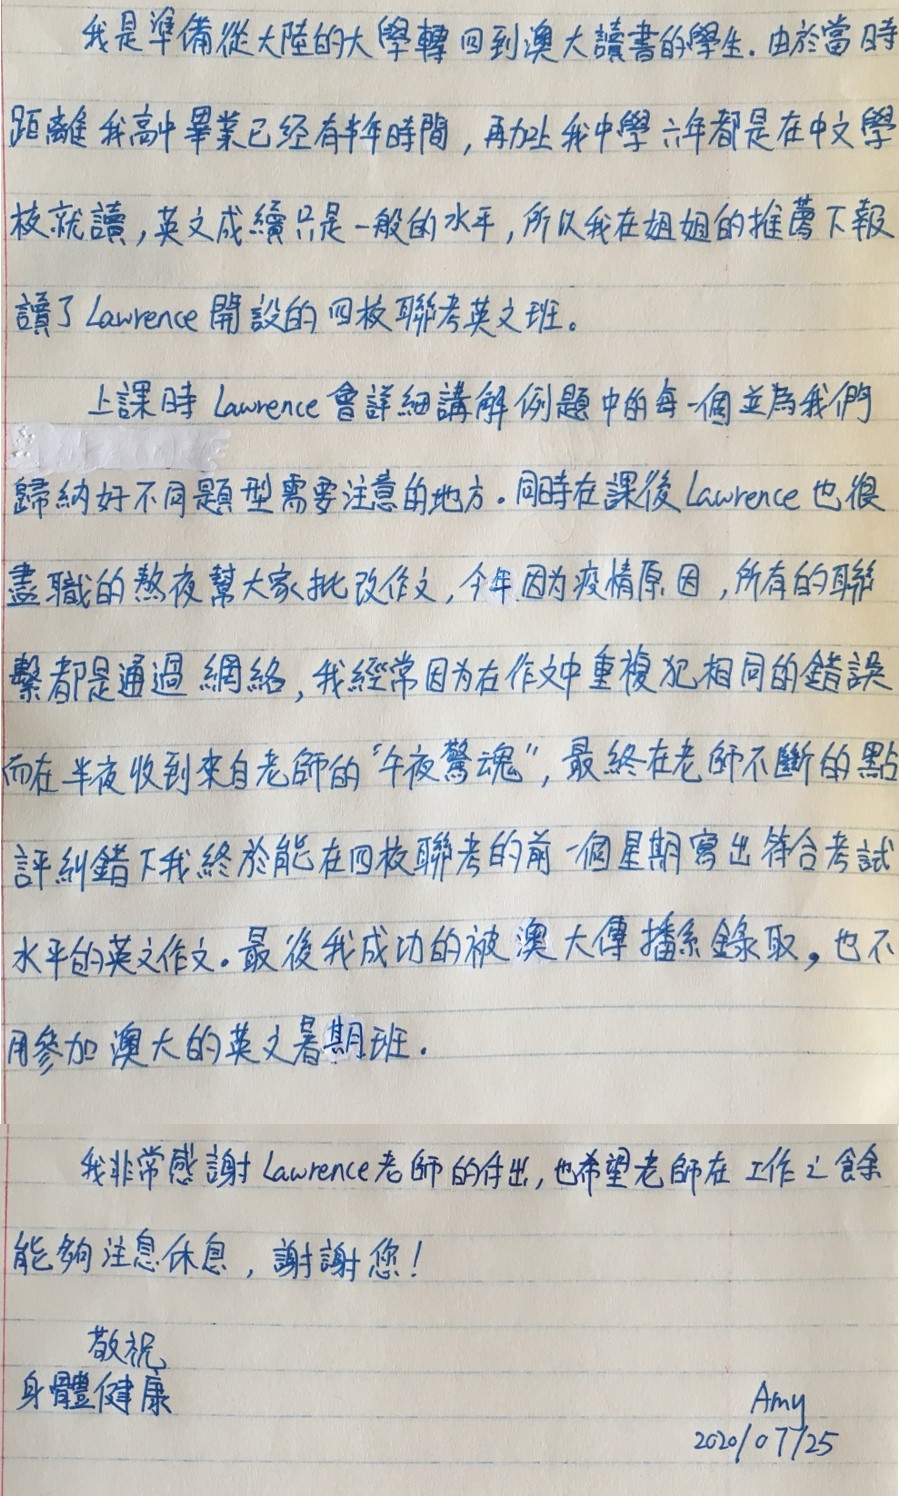 我是準備從大陸的大學轉回到澳大讀書的學生. 由於當時
距離我高中畢業已经有半年時間, 再加上我中學六年都是在中文學
校就讀, 英文成績只是一般的水平, 所以我在姐姐的推薦下報
讀了Lawrence開設的四校聯考英文班。
上課時Lawrence會詳細講解例題中的每一個並為我們
歸納好不同題型需要注意的地方. 同時在課後Lawrence也很
盡職的熬夜幫大家批改作文, 今年因为疫情原因, 所有的聯
繫都是通過網絡, 我經常因为在作文中重複犯相同的錯誤
而在半夜收到來自老師的“午夜驚魂”, 最終在老師不斷的點
評糾錯下我終於能在四校聯考的前一個星期寫出符合考試
水平的英文作文. 最後我成功的被澳大傳播系錄取, 也不
用參加澳大的英文暑期班.
我非常感謝Lawrence老師的付出, 也希望老師在工作之餘
能夠注息休息, 謝謝您!
敬祝
身體健康
Amy
2020/07/25